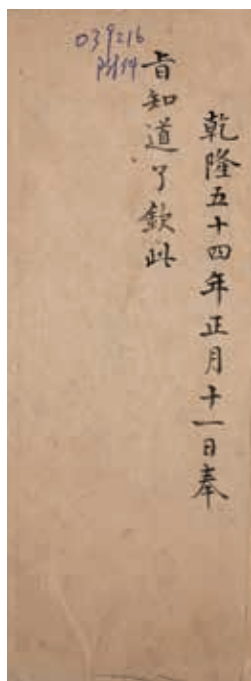 039216
附件
乾隆五十四年正月十一日奉
旨知道了欽此